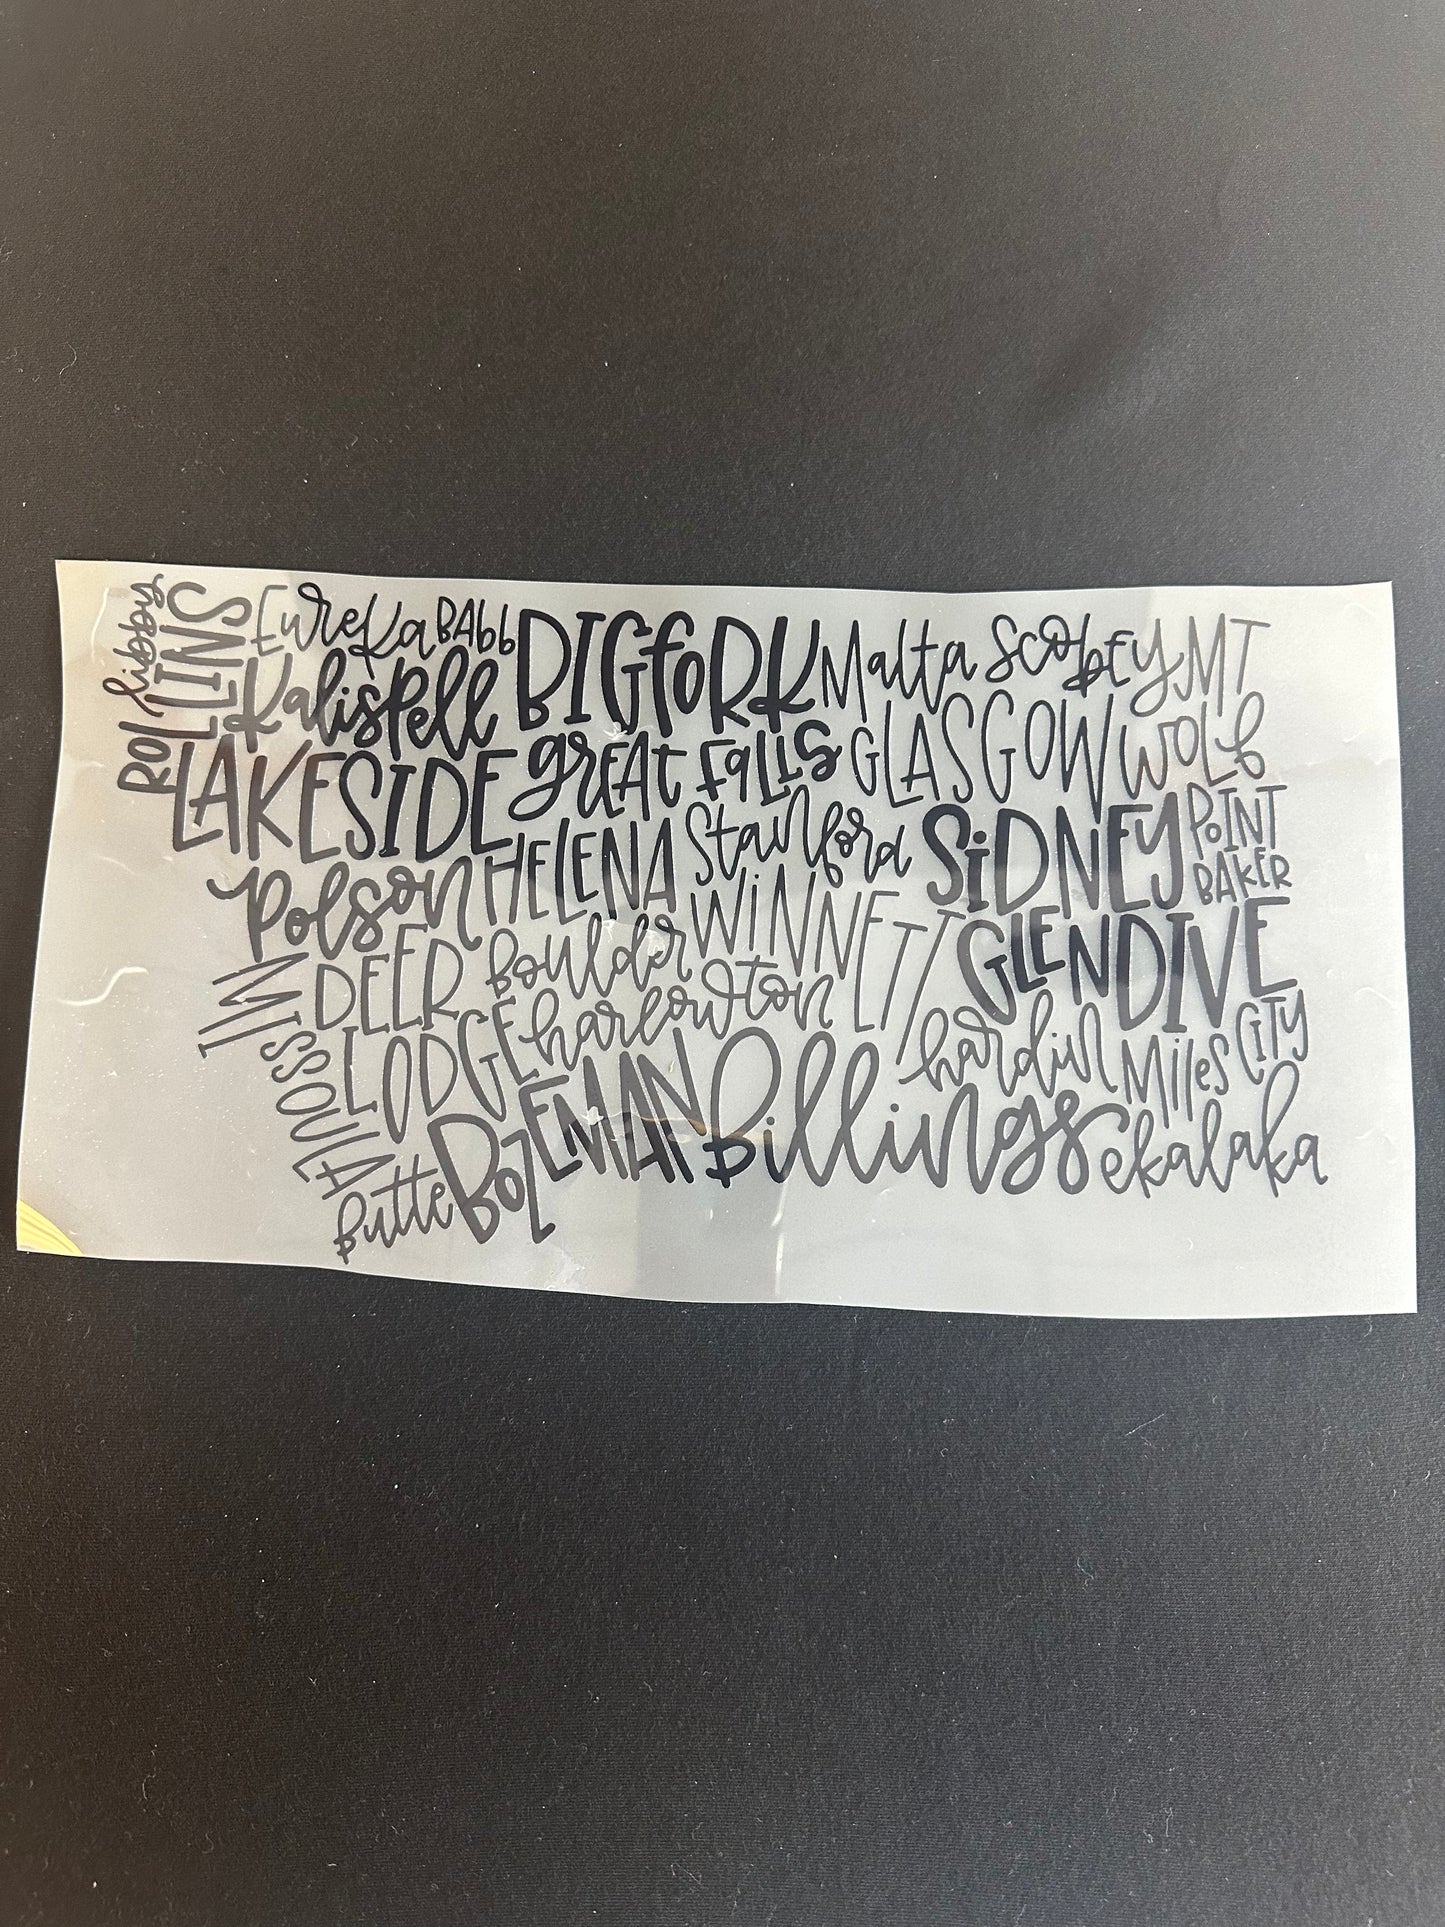 libby
ROLLINS
EureKa BAbb BIGfORK Malta ScObEY MT
Kalispell
LAKESIDE grEAt FallS GLASGOW WOLf
POINT
Polson HELENA Stanford SiDNEY BAKER
DEER Boulder WiNNETT GLENDIVE
LODGE harlowton hardin Miles CITY
MISSOULA
Butte BOZEMAN Billings ekalaka